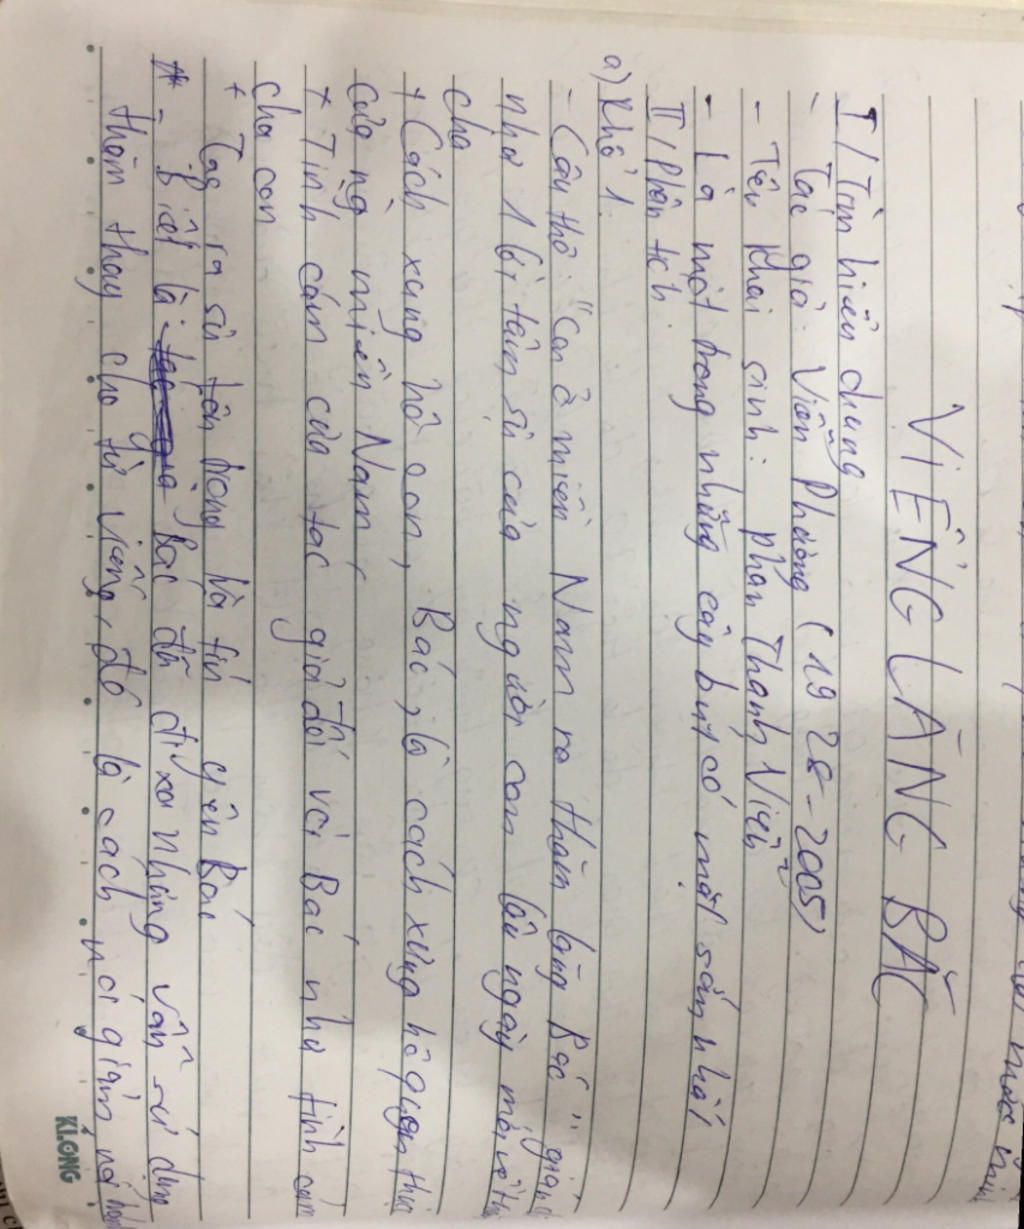 VIẾNG LĂNG BÁC
I/ Tìm hiểu chung
- Tác giả: Viễn Phương (1928-2005)
- Tên khai sinh: Phan Thanh Viễn
- Là một trong những cây bút có mặt sớm nhất
II/ Phân tích.
a) Khổ 1.
- Câu thơ: "Con ở miền Nam ra thăm lăng Bác" giản dị
như 1 lời tâm sự của người con lâu ngày mới về
cha
+ Cách xưng hô con, Bác, là cách xưng hô quen
của ng miền Nam,
+ Tình cảm của tác giả đối với Bác như tình cảm
cha con
+ Tạo ra sự tôn trọng và yên Bác
* - Biết là Bác đã đi xa nhưng vẫn sử dụng
thăm thay cho từ viếng, đó là cách nói giảm nói
KLONG